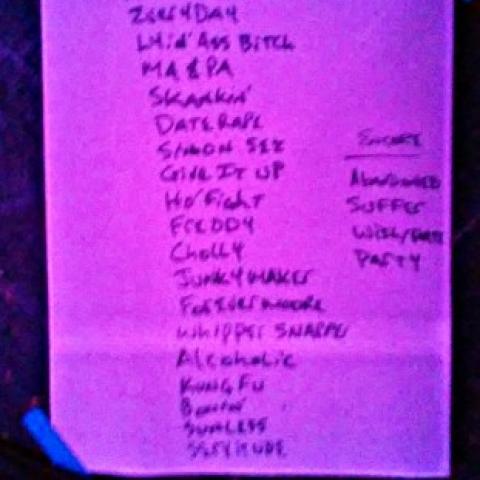 EVERYDAY
LYIN' ASS BITCH
MA & PA
SKANKIN'
DATE RAPE
SIMON SEZ
GIVE IT UP
HO' FIGHT
FREDDY
CHOLLY
JUNKYMAKER
FOREVERMOORE
WHIPPER SNAPPER
ALCOHOLIC
KUNG FU
BONIN'
SUNLESS
SERVITUDE
ENCORE
ABANDONED
SUFFER
PARTY